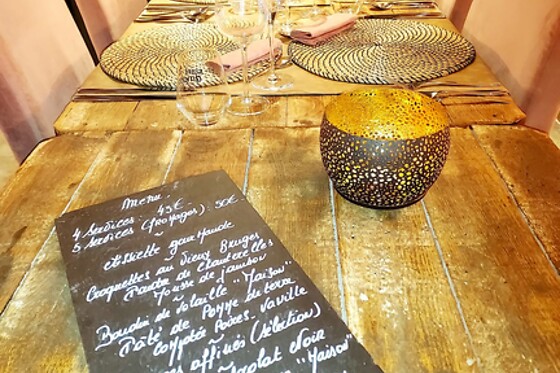 Menu
4 Services : 45€
5 Services (fromages) : 50€
Assiette gourmande
Croquettes au Vieux Bruges
Poudre de Chanterelles
Mousse de Jambon
Boudin de Volaille "Maison"
Pâté de Pomme de terre
Compotée Poires-Vaville
affinés (sélection)
Chocolat Noir
"Maison"